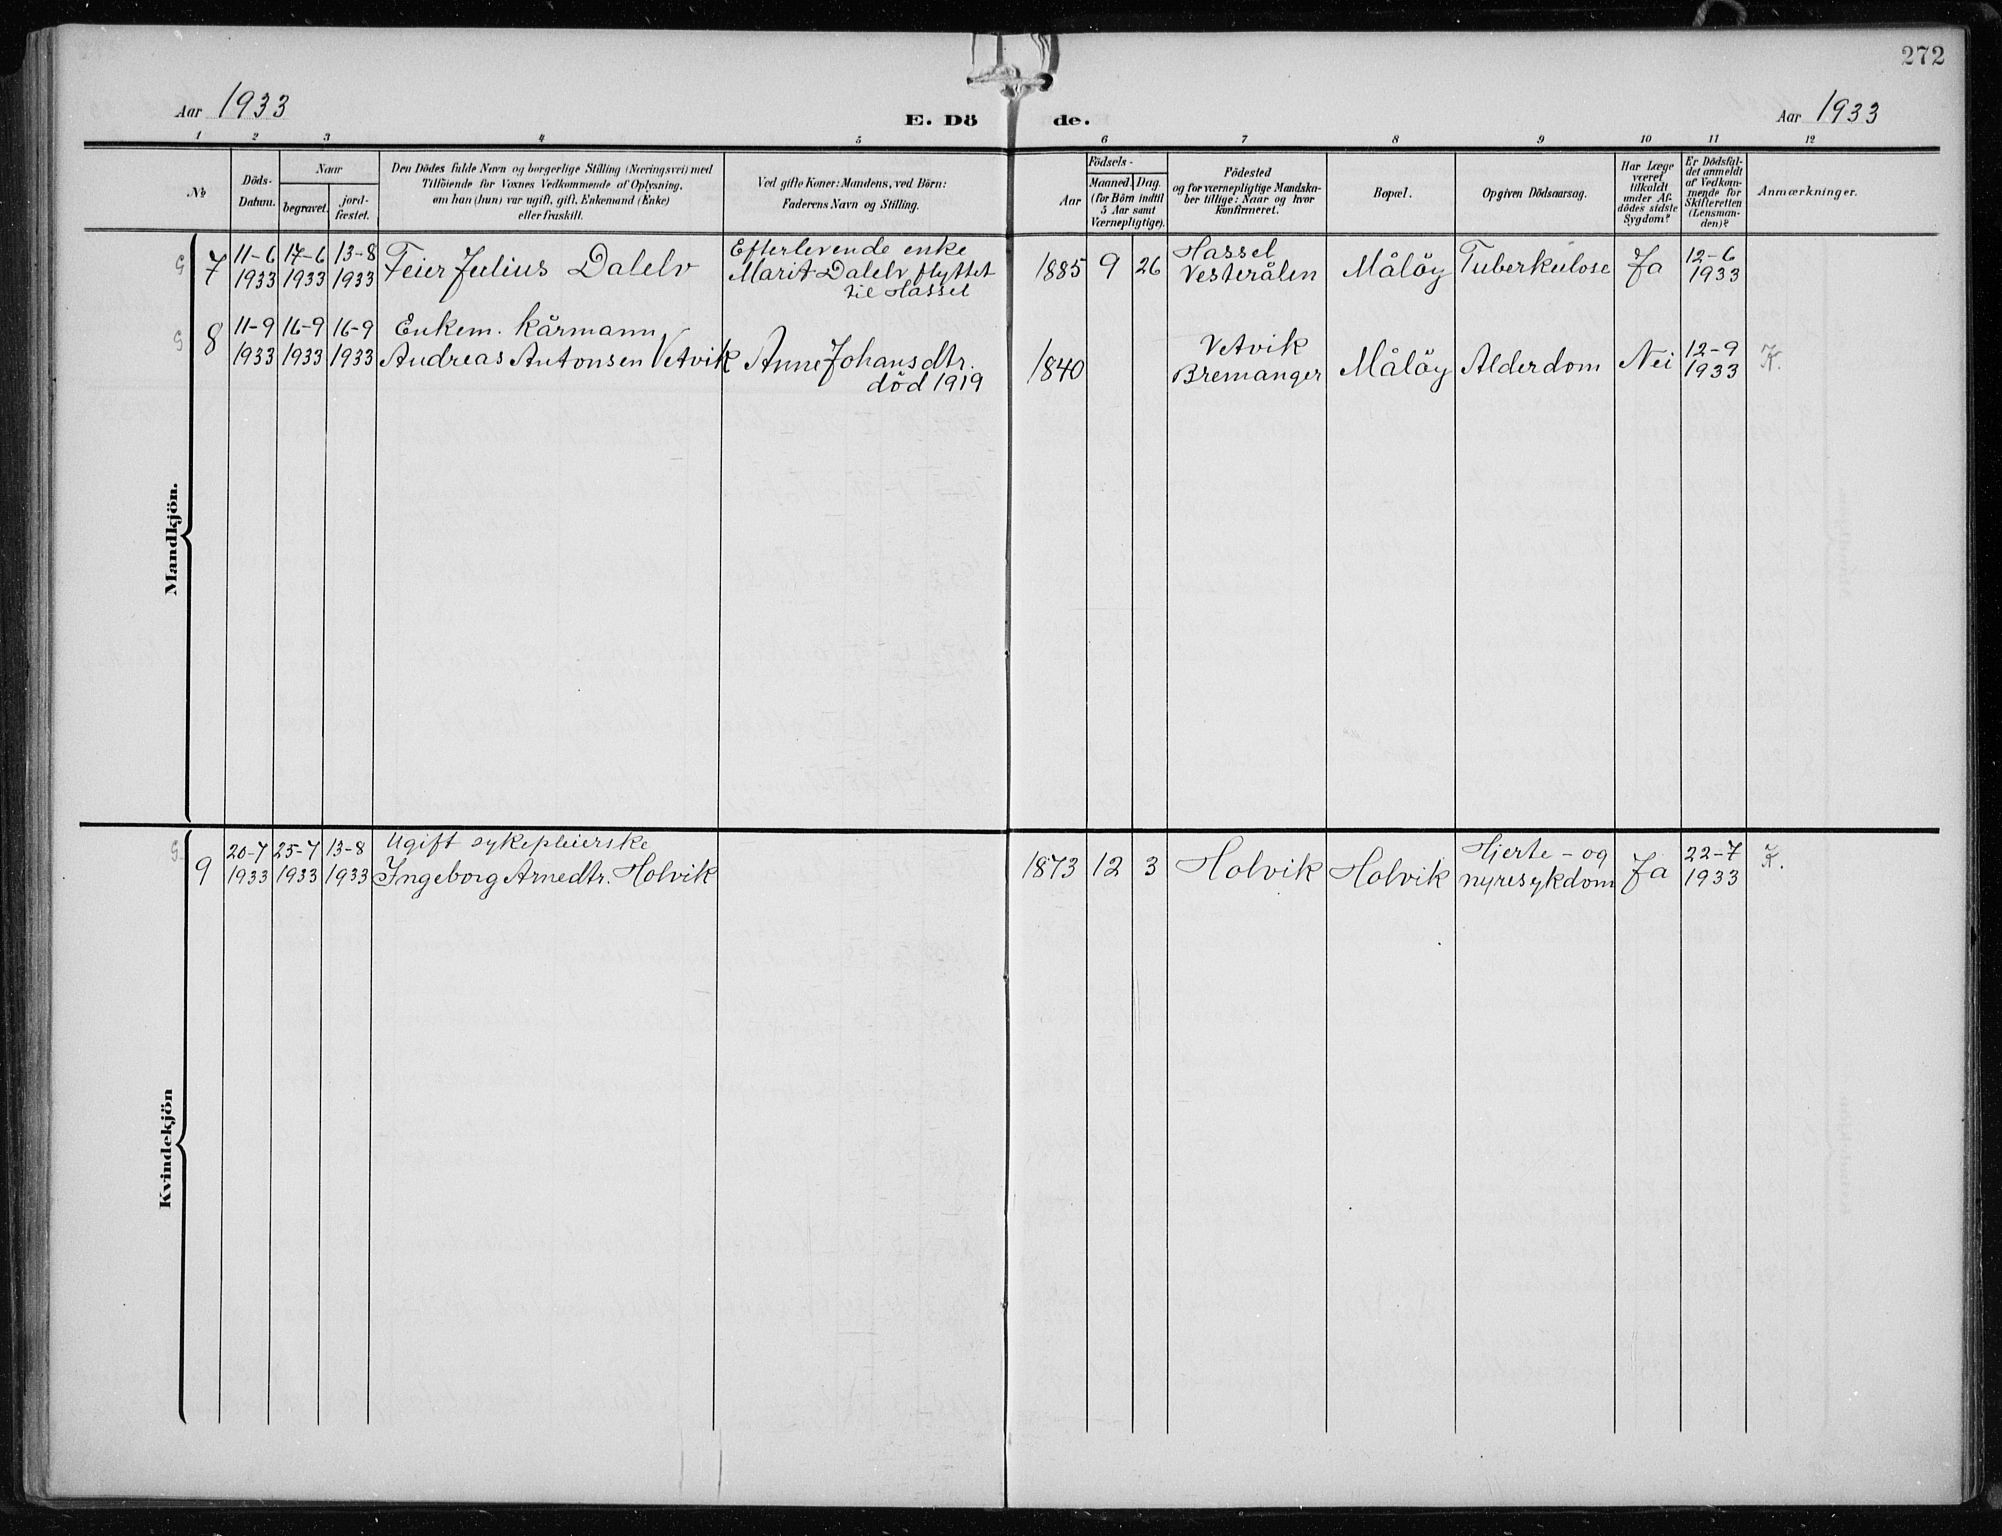 272
Aar 1933
E. Döde.
Aar 1933
1 2 3 4 5 6 7 8 9 10 11 12
No
Döds-Datum.
Naar
begravet.
jord-fæstet.
Den Dödes fulde Navn og borgerlige Stilling (Næringsvei) med
Tilföiende for Voxnes Vedkommende af Oplysning.
om han (hun) var ugift, gift, Enkemand (Enke)
eller fraskilt.
Ved gifte Koner: Mandens, ved Börn:
Faderens Navn og Stilling.
Födsels-
Aar
Maaned. Dag.
(for Börn indtil
5 Aar samt
Værnepligtige).
Födested
og for værnepligtige Mandska-
ber tillige: Naar og hvor
Konfirmeret.
Bopæl.
Opgiven Dödsaarsag.
Har Læge
været
tilkaldt
under Af-
dödes sidste
Sygdom?
Er Dödsfal-
det anmeldt
af Vedkom-
mende for
Skifteretten
(Lensman-
den)?
Anmærkninger.
Mandkjön.
G 7 11-6 1933 17-6 1933 13-8 1933 Feier Julius Dalelv
Efterlevende enke
Marit Dalelv flyttet
til Hassel
1885 9 26 Hassel
Vesterålen
Måløy Tuberkulose Ja 12-6 1933
G 8 11-9 1933 16-9 1933 16-9 1933 Enkem. kårmann
Andreas Antonsen Vetvik
Anne Johansdtr.
død 1919
1840 Vetvik
Bremanger
Måløy Alderdom Nei 12-9 1933 K.
Kvindekjön
G 9 20-7 1933 25-7 1933 13-8 1933 Ugift sykepleierske
Ingeborg Arnedtr. Holvik
1873 12 3 Holvik Holvik Hjerte - og
nyresykdom
Ja 22-7 1933 K.